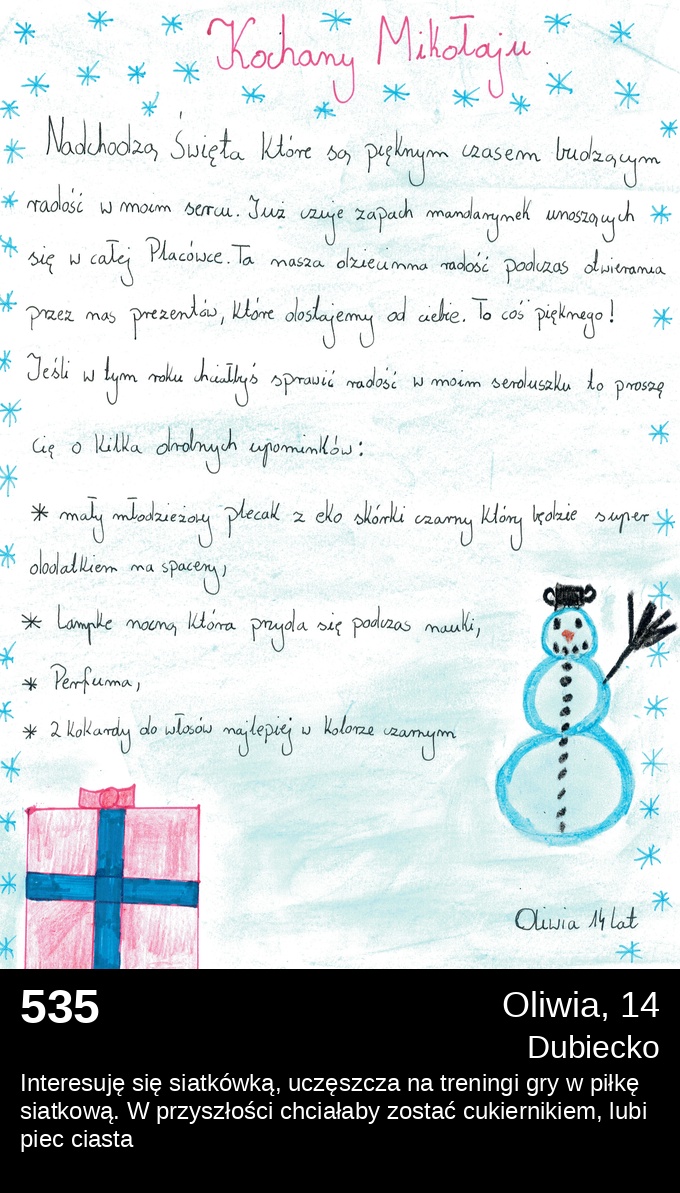 Kochany Mikołaju
Nadchodzą Święta które są pięknym czasem budzącym
radość w moim sercu. Już czuje zapach mandarynek unoszących
się w całej Placówce. Ta nasza dziecinna radość podczas otwierania
przez nas prezentów, które dostajemy od ciebie. To coś pięknego!
Jeśli w tym roku chciałbyś sprawić radość w moim serduszku to proszę
cię o kilka drobnych upominków:
* mały młodzieżowy plecak z eko skórki czarny który będzie super
dodatkiem na spacery,
* Lampkę nocną która przyda się podczas nauki,
* Perfuma,
* 2 kokardy do włosów najlepiej w kolorze czarnym
Oliwia 14 lat
535
Oliwia, 14
Dubiecko
Interesuję się siatkówką, uczęszcza na treningi gry w piłkę
siatkową. W przyszłości chciałaby zostać cukiernikiem, lubi
piec ciasta